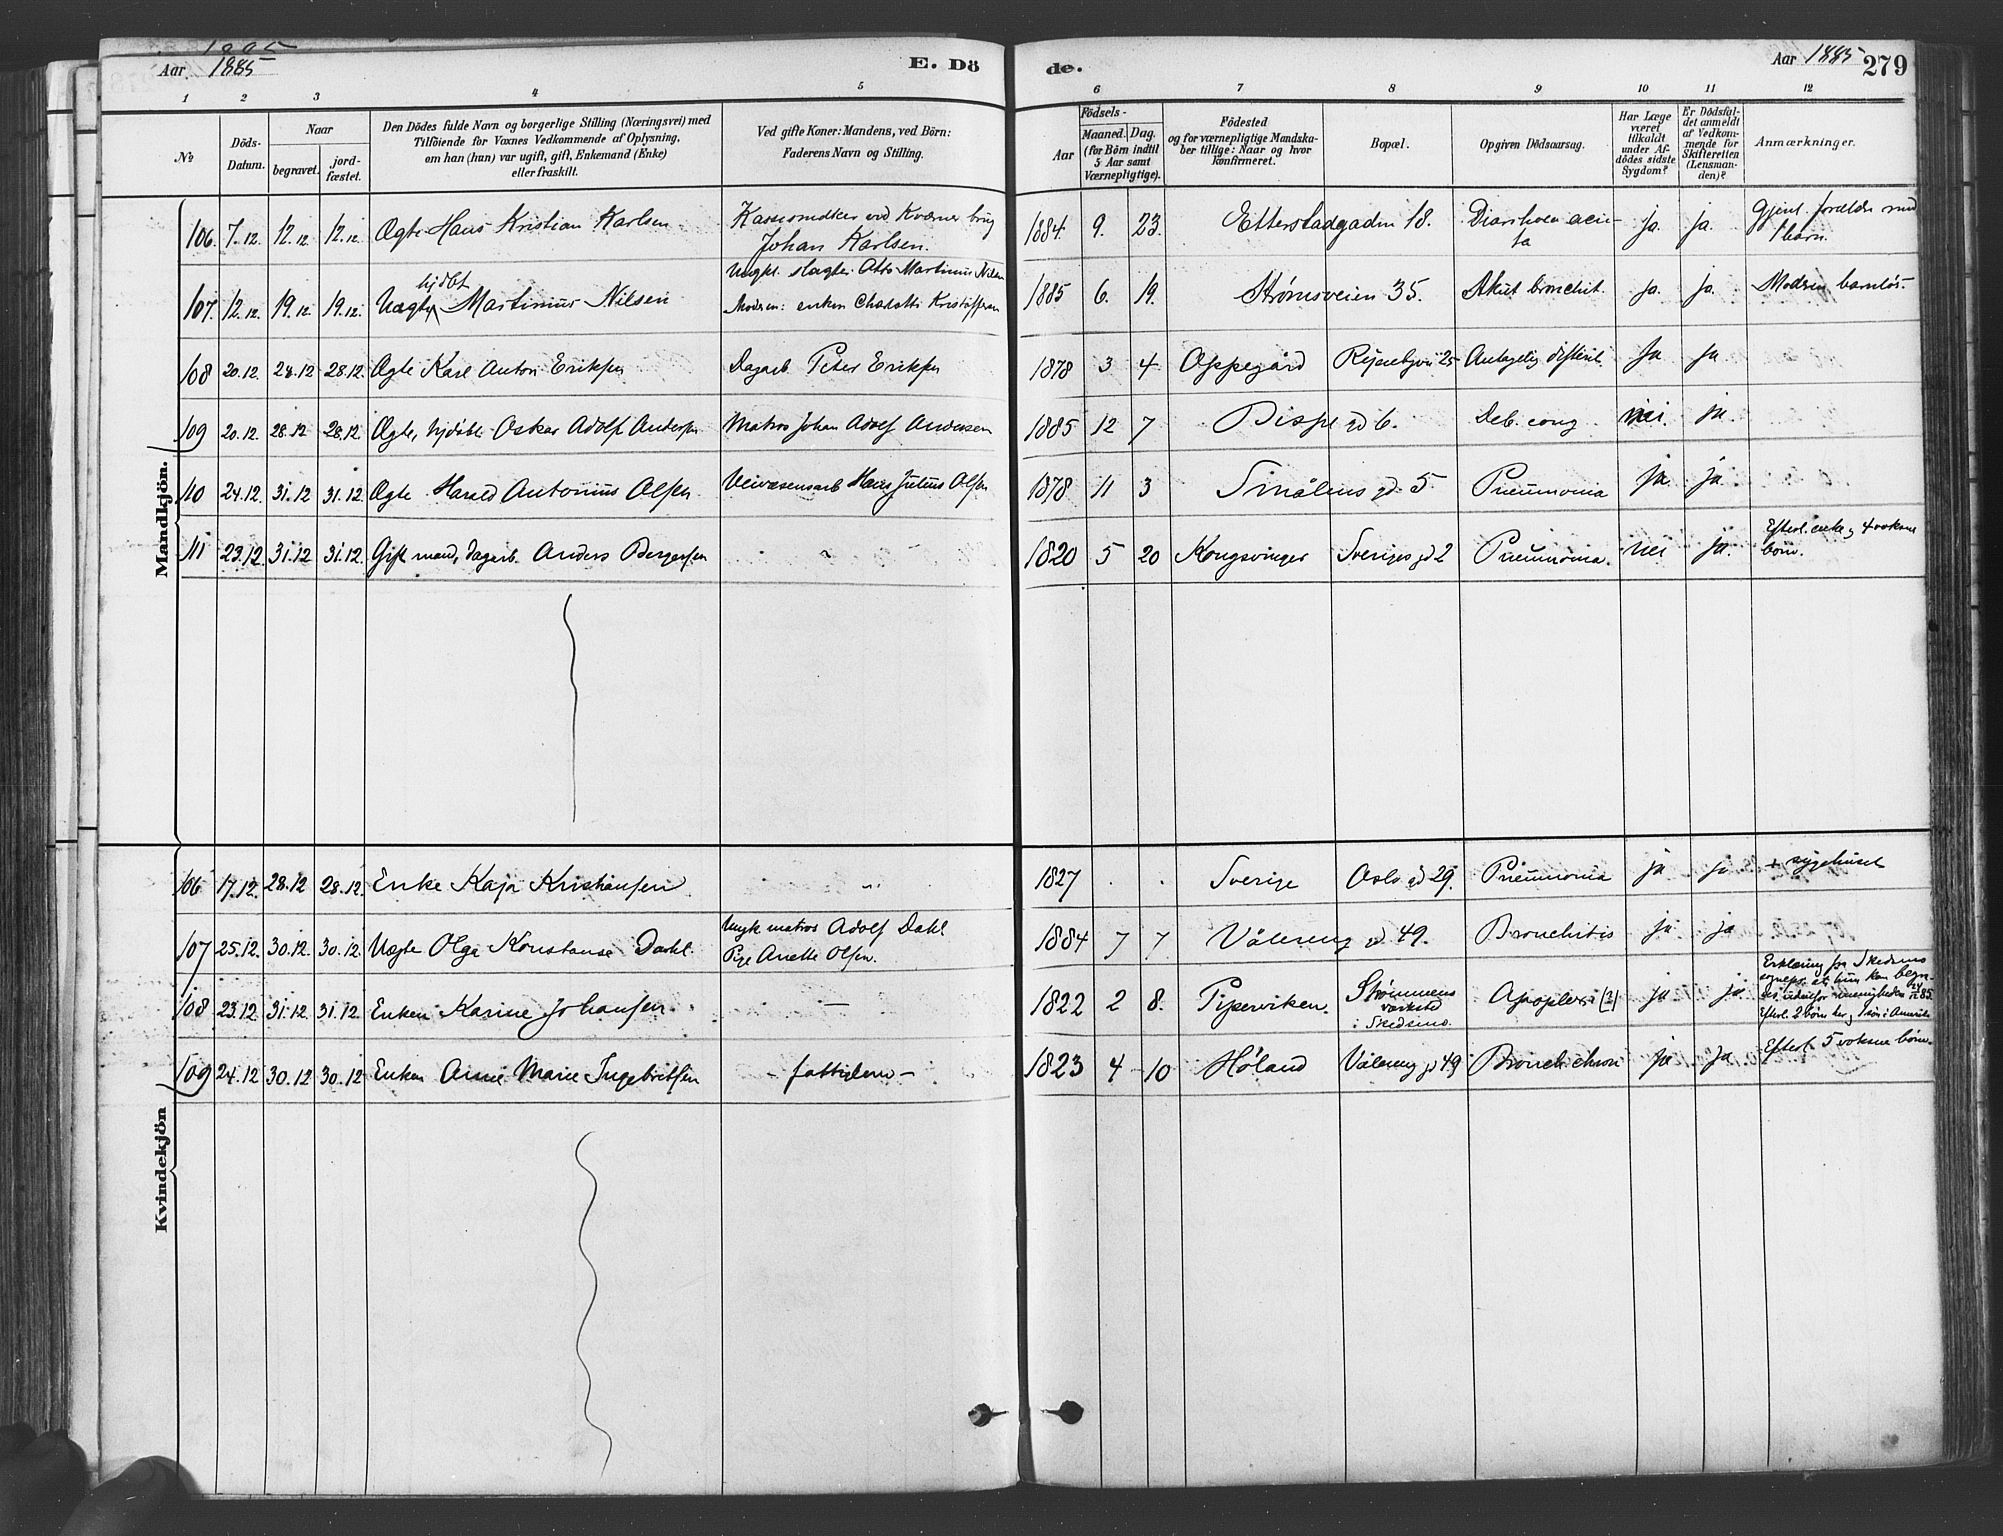 Aar 1885
E. Dö
de.
Aar 1885 279
1 2 3 4 5 6 7 8 9 10 11 12
№
Döds-
Datum.
Naar
begravet.
jord-
fæstet.
Den Dödes fulde Navn og borgerlige Stilling (Næringsvei) med
Tilföiende for Voxnes Vedkommende af Oplysning,
om han (hun) var ugift, gift, Enkemand (Enke)
eller fraskilt.
Ved gifte Koner: Mandens, ved Börn:
Faderens Navn og Stilling.
Födsels-
Aar
Maaned. Dag.
(for Börn indtil
5 Aar samt
Værnepligtige).
Födested
og for værnepligtige Mandska-
ber tillige: Naar og hvor
konfirmeret.
Bopæl.
Opgiven Dödsaarsag.
Har Læge
været
tilkaldt
under Af-
dödes sidste
Sygdom?
Er Dödsfal-
det anmeldt
af Vedkom-
mende for
Skifteretten
(Lensman-
den)?
Anmærkninger.
Mandkjön.
106. 7.12. 12.12. 12.12. Ægte Hans Kristian Karlsen
ved Kværner brug
Johan Karlsen.
1884 9. 23. Etterstadgaden 18. Diarrhoea acu-
ta
ja. ja. Gjenl. forældre med
1 barn.
107. 12.12. 19.12. 19.12. Uægte hjdbt Martinius Nilsen
Ungkl. slagter Otto Martinius Nilsen
Moderen: enken Charlotte Kristoffersen
1885 6. 19. Strømsveien 35. Akut bronchit. ja. ja. Moderen barnløs.
108 20.12. 28.12 28.12. Ægte Karl Anton Eriksen
Dagarb. Peter Eriksen
1878 3 4 Oppegård 25 Antagelig difterit ja ja
109 20.12. 28.12 28.12 Ægte, hjdöbt Oskar Adolf Andersen
Matros Johan Adolf Andersen
1885 12 7 Bispegd 6. Deb. cong. nei ja.
110 24.12. 31.12 31.12. Ægte Harald Antonius Olsen
Veivæsensarb Hans Julius Olsen
1878 11 3 Smålens gd 5 Pneumonia ja. ja.
111 23.12. 31.12 31.12. Gift mand, dagarb. Anders Bergersen
1820 5 20 Kongsvinger Sveriges gd 2 Pneumonia. nei ja. Efterl. enke og 4 voksne
börn.
Kvindekjön
106 17.12. 28.12 28.12. Enke Kaja Kristiansen
1827 . . Sverige Oslo gd 29. Pneumonia ja ja + sygehuset
107 25.12. 30.12. 30.12. Uægte Olga Konstanse Dahl.
Ungk matros Adolf Dahl
Pige Anette Olsen.
1884 7 7 Vålereng gd 49. Bronchitis ja ja
108 23.12. 31.12 31.12. Enken Karine Johansen
—
1822 2 8. Pipervike​n. Strömmens
værksted
i Skedsmo.
Apoplexi (?) ja ja Erklæring fra Skedsmo
at hun kan begra-
ves udenfor menigheden 24/12 85.
Efterl. 2 börn her og 1 sön i Amerika
109 24.12 30.12 30.12 Enken Anne Marie Ingebritsen
- fattiglem -
1823 4 10 Höland Vålereng gd 49 Bronch chron ja ja Efterl. 5 voksne börn.